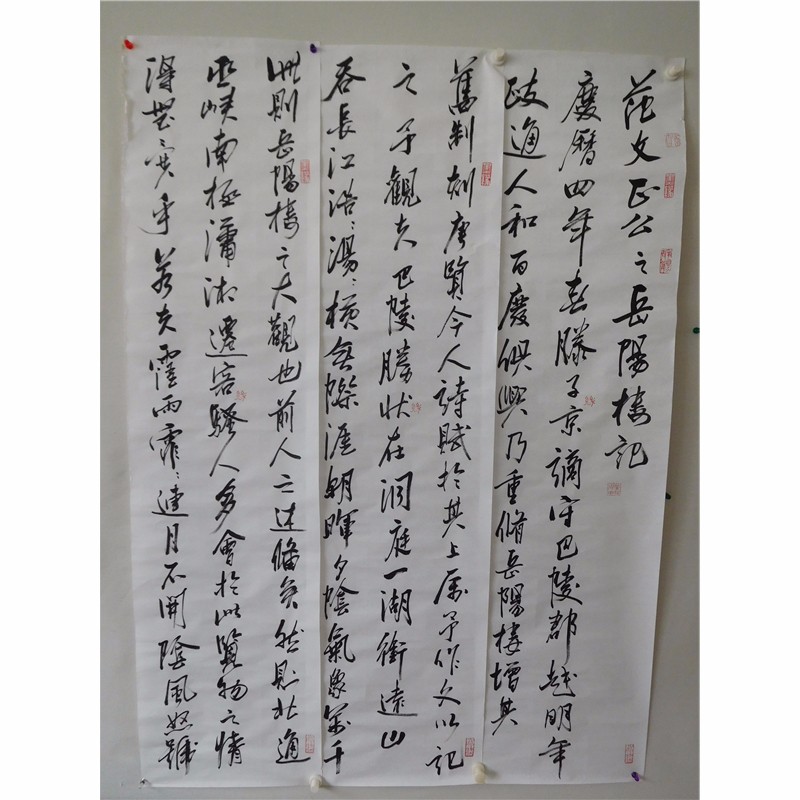 范文正公之岳陽樓記
慶曆四年春滕子京謫守巴陵郡越明年
政通人和百廢俱興乃重脩岳陽樓增其
舊制刻唐賢今人詩賦於其上屬予作文以記
之予觀夫巴陵勝狀在洞庭一湖銜遠山
吞長江浩浩湯湯橫無際涯朝暉夕陰氣象萬千
此則岳陽樓之大觀也前人之述備矣然則北通
巫峽南極瀟湘遷客騷人多會於此覽物之情
得無異乎若夫霪雨霏霏連月不開陰風怒號